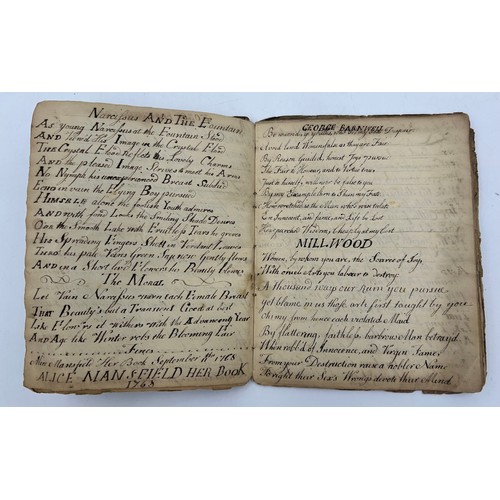 Narcissus AND THE Fountain
As young Narcissus at the Fountain Stood
AND View'd His Image in the Crystal Flood
THE Crystal Flood Reflects his Lovely Charms
AND the pleased Image Strives to meet his Arms
No Nymph his unexperienced Breast Subdu'd
Echo in vain the Flying Boy pursu'd
HIMSELF alone the foolish Youth admires
AND with fond Look the Smiling Shade Desires
O'er the Smooth Lake with Fruitless Tears he grieves
His Spreading Fingers Shoot in Verdant Leaves
Through his pale Veins Green Sap now Gently flows
AND in a Short Liv'd Flower his Beauty blows
THE MORAL
Let Vain Narcissus warn each Female Breast
THAT Beauty's but a Transient Good at best
Like Flowers it withers with the Advancing Year
And Age like Winter robs the Blooming Fair
Finis
Alice Mansfield Her Book September 11th 1768
ALICE MANSFIELD HER BOOK
1768
GEORGE BARNWELL
Be warn'd
Avoid lewd Women false as they are Fair
By Reason Guided, honest Joys pursue
The Fair to Honour, and to Virtue true
Just to herself, will ne'er be false to you
By my Example learn to Shun my Fate
How wretched is the Man who's wise too late
E'er Innocence, and fame, and Life be Lost
Here purchase Wisdom, Cheaply at my Cost
MILLWOOD
Women, by whom you are, the Source of Joy
With cruel Arts you labour to Destroy:
A thousand ways our Ruin you pursue
Yet blame in us those arts first taught by you
Oh may from hence each violated Maid
By flattering, faithless, barbarous Man betray'd
When robb'd of Innocence, and Virgin Fame
From your Destruction raise a nobler Name
To right their Sex's Wrongs devote their Mind